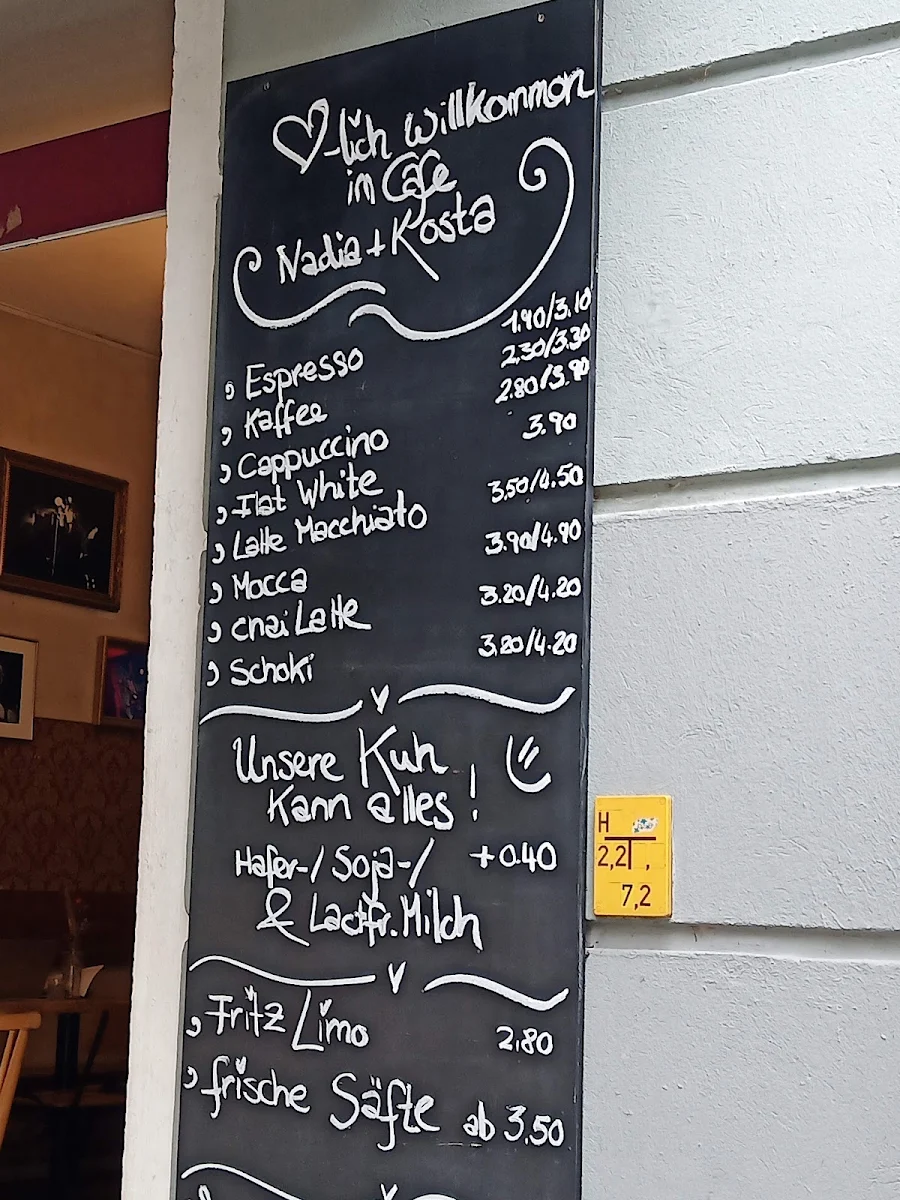 ♡-lich Willkommen
im Café
Nadia + Kosta
Espresso 1.90/3.10
Kaffee 2.30/3.30
Cappuccino 2.80/3.90
Flat White 3.90
Latte Macchiato 3.50/4.50
Mocca 3.90/4.90
Chai Latte 3.20/4.20
Schoki 3.20/4.20
Unsere Kuh
kann alles!
Hafer-/Soja-/ +0.40
& Lactfr. Milch
Fritz Limo 2.80
frische Säfte ab 3.50
H
2,2 ,
7,2